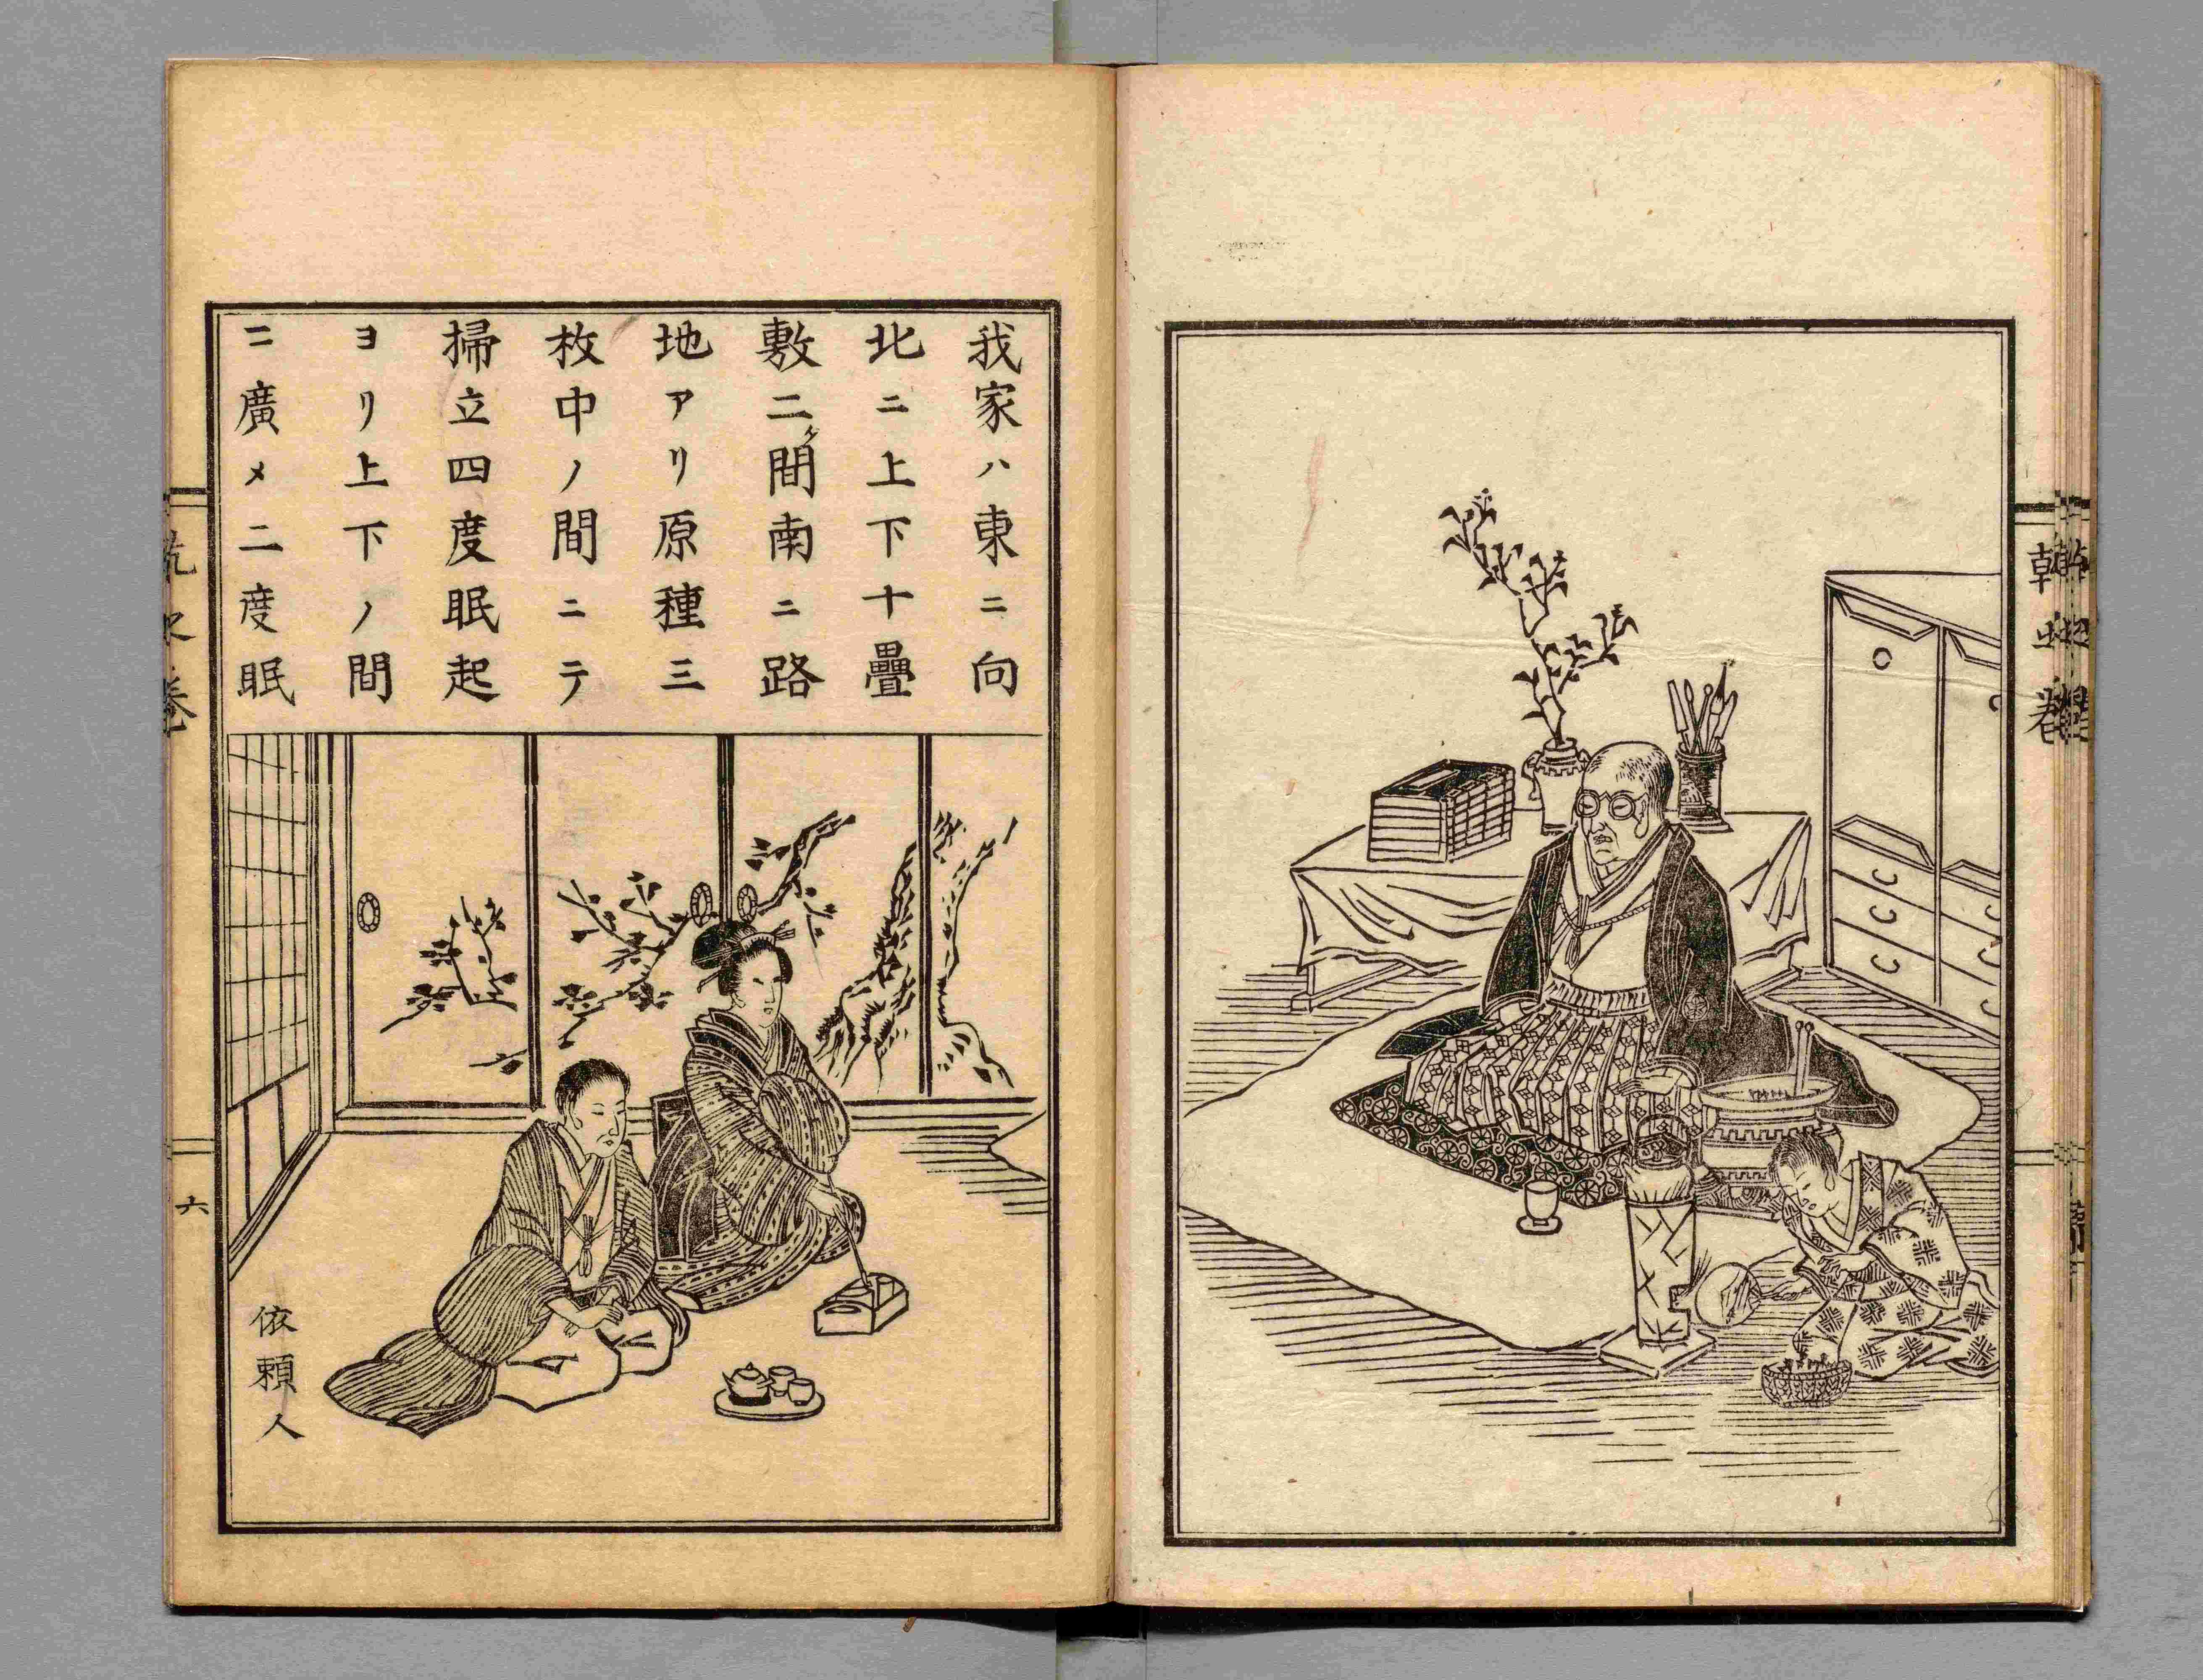 我家ハ東ニ向
北ニ上下十疊
敷二間南ニ路
地アリ原種三
枚中ノ間ニテ
掃立四度眠起
ヨリ上下ノ間
ニ廣メ二度眠
依頼人
六